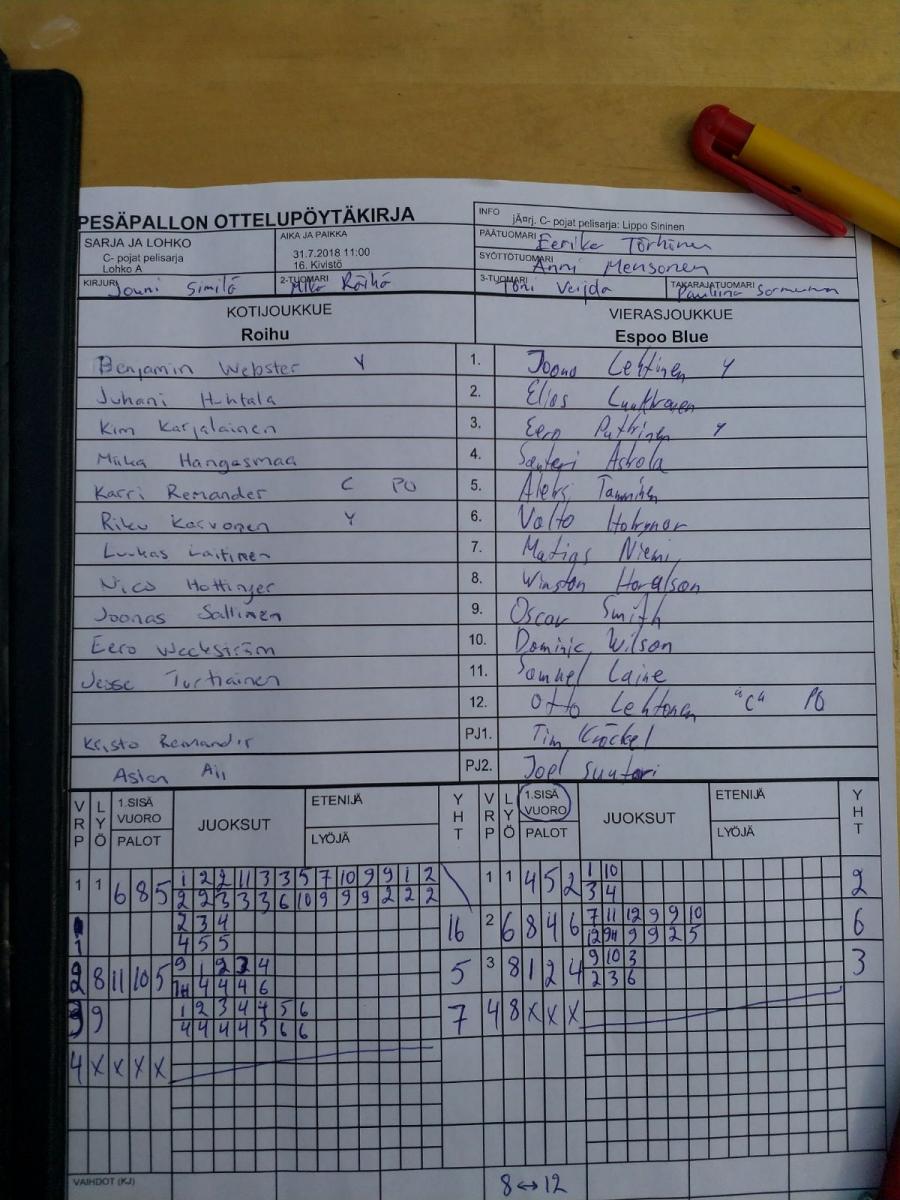 PESÄPALLON OTTELUPÖYTÄKIRJA
INFO
jÃ¤rj. C- pojat pelisarja: Lippo Sininen
SARJA JA LOHKO
C- pojat pelisarja
Lohko A
AIKA JA PAIKKA
31.7.2018 11:00
16. Kivistö
PÄÄTUOMARI Eerika Törhinen
SYÖTTÖTUOMARI Anni Mensonen
KIRJURI Jouni Similä
2-TUOMARI Mika Räihä
3-TUOMARI Toni Veijda
TAKARAJATUOMARI Pauliina Sormunen
KOTIJOUKKUE
Roihu
VIERASJOUKKUE
Espoo Blue
Benjamin Webster Y 1. Joona Lehtinen Y
Juhani Huhtala 2. Elias
Kim Karjalainen 3. Eero Puttinen Y
Miika Hangasmaa 4. Santeri Askola
Karri Remander C PU 5. Aleksi Tamminen
Riku Karvonen Y 6. Valto
Luukas Laitinen 7. Matias Niemi
Nico Hottinger 8. Winston Haralson
Joonas Sallinen 9. Oscar Smith
Eero Weckström 10. Dominic Wilson
Jesse Turtiainen 11. Samuel Laine
12. Otto Lehtonen "C" PU
Kristo Remander PJ1. Tim Kröckel
Aslan Ali PJ2. Joel Suntari
VRP LYÖ 1.SISÄ VUORO PALOT JUOKSUT ETENIJÄ LYÖJÄ YHT VRP LYÖ 1.SISÄ VUORO PALOT JUOKSUT ETENIJÄ LYÖJÄ YHT
1 1 6 8 5 1 2 2 11 3 3 5 7 10 9 9 1 2 1 1 4 5 2 1 10 2
2 2 3 3 3 6 10 9 9 9 2 2 2 3 4
1 2 3 4 16 2 6 8 4 6 7 11 12 9 9 10 6
4 5 5 12 9 9 2 5
2 8 11 10 5 9 1 2 2 4 5 3 8 1 2 4 9 10 3 3
4 4 4 6 2 3 6
3 9 1 2 3 4 4 5 6 7 4 8 X X X
4 4 4 4 5 6 6
4 X X X X
VAIHDOT (KJ) 8↔12